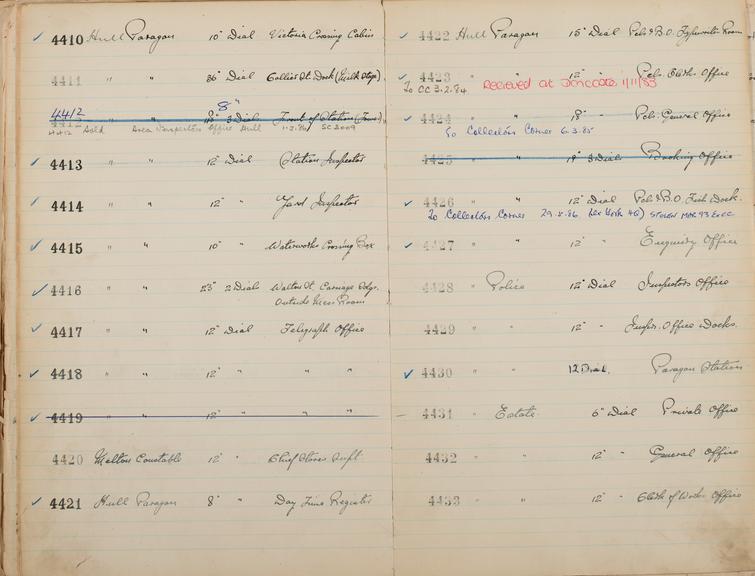 4410 Hull Paragon 10" Dial Victoria Crossing Cabin
4411 " " 36" Dial Collier St. Dock (Milk Stage)
8"
4412
4412 3 Dial Front of Station
4412 Sold Area Inspectors Office Hull SC 3009
4413 " " 12" Dial Station Inspector
4414 " " 12" " Yard Inspector
4415 " " 10" " Waterworks Crossing Box
4416 " " 2 Dial Walton St. Carriage Sdgs.
Outside Mess Room
4417 " " 12" Dial Telegraph Office
4418 " " 12" " " "
4419 " " 12" " " "
4420 Melton Constable 12" " Chief Stores Supt
4421 Hull Paragon 8" " Day Time Register
4422 Hull Paragon 15" Dial Pcls & B.O. Typewriter Room
4423 " " 12" " Pcls. Clerks Office
To CC 3.2.84 Recieved at 1/11/83
4424 " " 18" " Pcls. General Office
To Collectors Corner 6.3.85
4425 " " 3 Dial Booking Office
4426 " " 12" Dial Pcls & B.O. Fish Dock.
To Collectors Corner 29.8.86 STOLEN MAR 93
4427 " " 12" " Enquiry Office
4428 " Police 12" Dial Inspectors Office
4429 " " 12" " Inspr. Office Docks.
4430 " " 12 Dial. Paragon Station
4431 " Estate 6" Dial Private Office
4432 " " 12" " General Office
4433 " " 12" " Clerk of Works Office